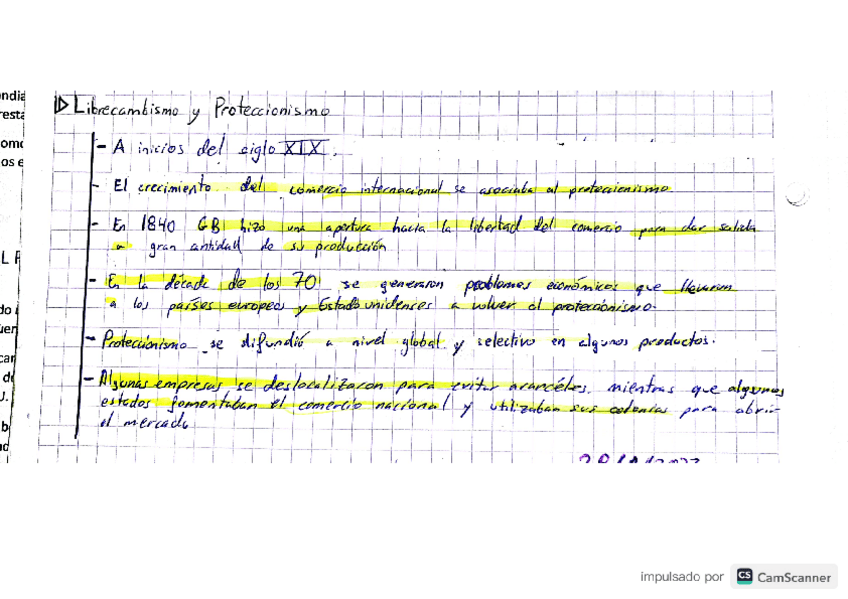 ndia
resta
omo
os e
L P
do
uer
car
de
J.
b
nd
Librecambismo y Proteccionismo
- A inicios del siglo XIX.
- El crecimiento del comercio internacional se asociaba al proteccionismo
- En 1840 GB hizo una apertura hacia la libertad del comercio para dar salida
a gran cantidad de su producción
- En la década de los 70' se generaron problemas económicos que llevaron
a los países europeos y Estadounidenses a volver al proteccionismo.
- Proteccionismo se difundió a nivel global y selectivo en algunos productos.
- Algunas empresas se deslocalizaron para evitar aranceles, mientras que algunos
estados fomentaban el comercio nacional y utilizaban sus colonias para abrir
el mercado
impulsado por CS CamScanner